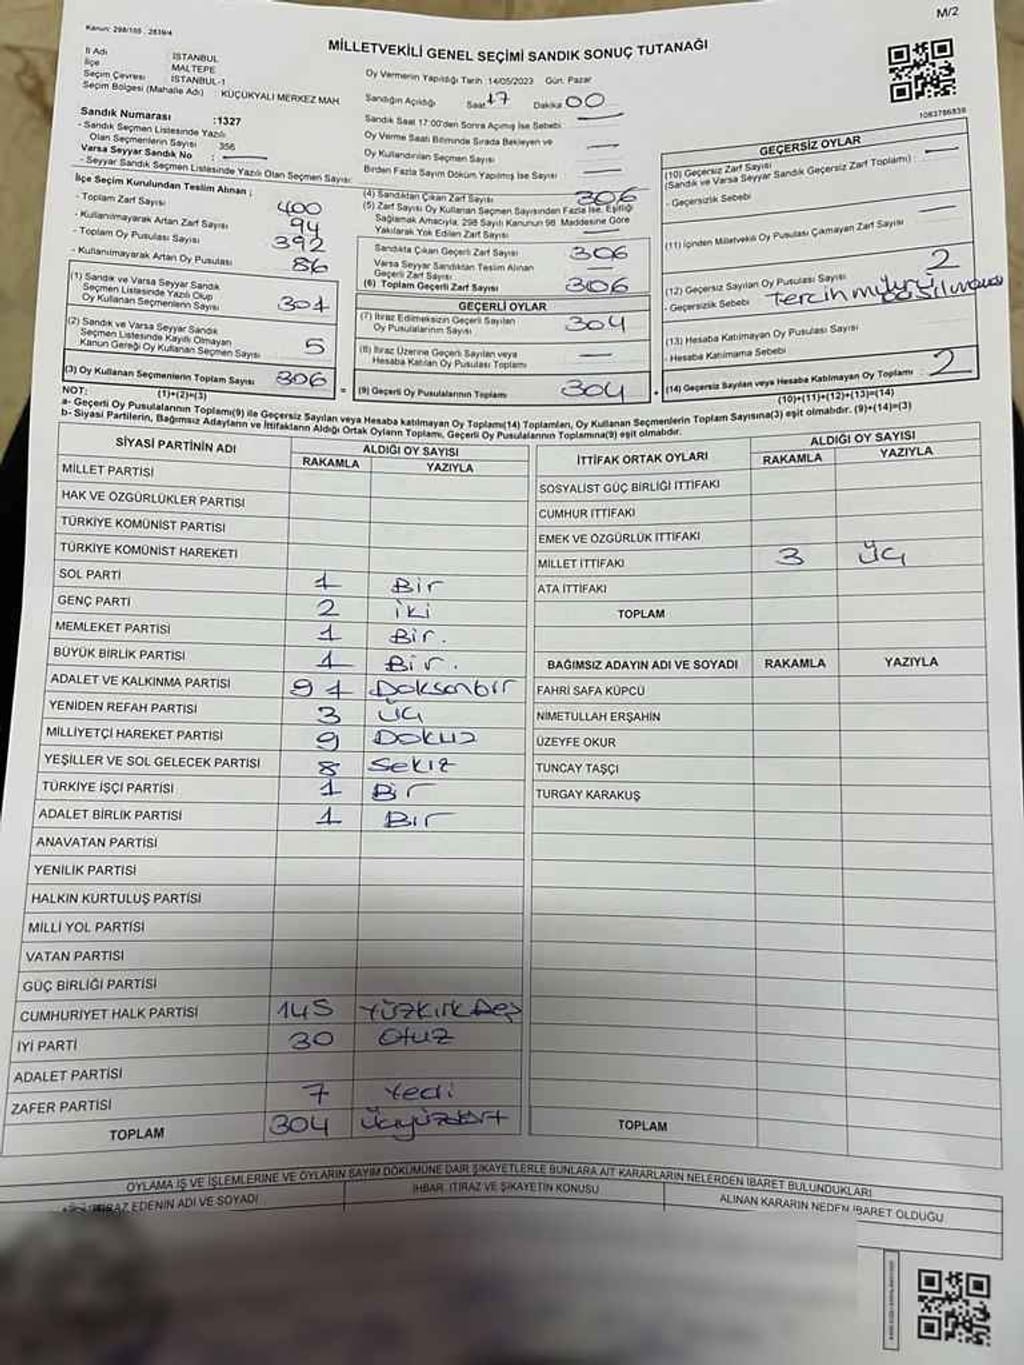 M/2
Kanun: 298/105 , 2839/4
MİLLETVEKİLİ GENEL SEÇİMİ SANDIK SONUÇ TUTANAĞI
İl Adı İSTANBUL
İlçe MALTEPE
Seçim Çevresi İSTANBUL-1
Seçim Bölgesi (Mahalle Adı) : KÜÇÜKYALI MERKEZ MAH.
Oy Vermenin Yapıldığı Tarih : 14/05/2023 Gün: Pazar
Sandığın Açıldığı Saat 17 Dakika 00
Sandık Saat 17:00'den Sonra Açılmış İse Sebebi
Oy Verme Saati Bitiminde Sırada Bekleyen ve
Oy Kullandırılan Seçmen Sayısı
Birden Fazla Sayım Döküm Yapılmış İse Sayısı
1083786838
Sandık Numarası :1327
- Sandık Seçmen Listesinde Yazılı
Olan Seçmenlerin Sayısı 356
Varsa Seyyar Sandık No :
- Seyyar Sandık Seçmen Listesinde Yazılı Olan Seçmen Sayısı:
İlçe Seçim Kurulundan Teslim Alınan ;
- Toplam Zarf Sayısı 400
- Kullanılmayarak Artan Zarf Sayısı 94
- Toplam Oy Pusulası Sayısı 392
- Kullanılmayarak Artan Oy Pusulası 86
(1) Sandık ve Varsa Seyyar Sandık
Seçmen Listesinde Yazılı Olup
Oy Kullanan Seçmenlerin Sayısı 301
(2) Sandık ve Varsa Seyyar Sandık
Seçmen Listesinde Kayıtlı Olmayan
Kanun Gereği Oy Kullanan Seçmen Sayısı 5
(3) Oy Kullanan Seçmenlerin Toplam Sayısı 306
(1)+(2)=(3)
(4) Sandıktan Çıkan Zarf Sayısı 306
(5) Zarf Sayısı Oy Kullanan Seçmen Sayısından Fazla İse, Eşitliği
Sağlamak Amacıyla, 298 Sayılı Kanunun 98. Maddesine Göre
Yakılarak Yok Edilen Zarf Sayısı
Sandıkta Çıkan Geçerli Zarf Sayısı 306
Varsa Seyyar Sandıktan Teslim Alınan
Geçerli Zarf Sayısı
(6) Toplam Geçerli Zarf Sayısı 306
GEÇERLİ OYLAR
(7) İtiraz Edilmeksizin Geçerli Sayılan
Oy Pusulalarının Sayısı 304
(8) İtiraz Üzerine Geçerli Sayılan veya
Hesaba Katılan Oy Pusulası Toplamı
= (9) Geçerli Oy Pusulalarının Toplamı 304
GEÇERSİZ OYLAR
(10) Geçersiz Zarf Sayısı
(Sandık ve Varsa Seyyar Sandık Geçersiz Zarf Toplamı) :
- Geçersizlik Sebebi
(11) İçinden Milletvekili Oy Pusulası Çıkmayan Zarf Sayısı
(12) Geçersiz Sayılan Oy Pusulası Sayısı 2
- Geçersizlik Sebebi Tercih mührü basılmamış
(13) Hesaba Katılmayan Oy Pusulası Sayısı
- Hesaba Katılmama Sebebi
+ (14) Geçersiz Sayılan veya Hesaba Katılmayan Oy Toplamı : 2
(10)+(11)+(12)+(13)=(14)
NOT:
a- Geçerli Oy Pusulalarının Toplamı(9) ile Geçersiz Sayılan veya Hesaba katılmayan Oy Toplamı(14) Toplamları, Oy Kullanan Seçmenlerin Toplam Sayısına(3) eşit olmalıdır. (9)+(14)=(3)
b- Siyasi Partilerin, Bağımsız Adayların ve İttifakların Aldığı Ortak Oyların Toplamı, Geçerli Oy Pusulalarının Toplamına(9) eşit olmalıdır.
SİYASİ PARTİNİN ADI ALDIĞI OY SAYISI
RAKAMLA YAZIYLA
MİLLET PARTİSİ
HAK VE ÖZGÜRLÜKLER PARTİSİ
TÜRKİYE KOMÜNİST PARTİSİ
TÜRKİYE KOMÜNİST HAREKETİ
SOL PARTİ 1 Bir
GENÇ PARTİ 2 iki
MEMLEKET PARTİSİ 1 Bir.
BÜYÜK BİRLİK PARTİSİ 1 Bir.
ADALET VE KALKINMA PARTİSİ 91 Doksanbir
YENİDEN REFAH PARTİSİ 3 Üç
MİLLİYETÇİ HAREKET PARTİSİ 9 Dokuz
YEŞİLLER VE SOL GELECEK PARTİSİ 8 Sekiz
TÜRKİYE İŞÇİ PARTİSİ 1 Bir
ADALET BİRLİK PARTİSİ 1 Bir
ANAVATAN PARTİSİ
YENİLİK PARTİSİ
HALKIN KURTULUŞ PARTİSİ
MİLLİ YOL PARTİSİ
VATAN PARTİSİ
GÜÇ BİRLİĞİ PARTİSİ
CUMHURİYET HALK PARTİSİ 145 Yüzkırkbeş
İYİ PARTİ 30 Otuz
ADALET PARTİSİ
ZAFER PARTİSİ 7 Yedi
TOPLAM 304 Üçyüzdört
İTTİFAK ORTAK OYLARI ALDIĞI OY SAYISI
RAKAMLA YAZIYLA
SOSYALİST GÜÇ BİRLİĞİ İTTİFAKI
CUMHUR İTTİFAKI
EMEK VE ÖZGÜRLÜK İTTİFAKI
MİLLET İTTİFAKI 3 Üç
ATA İTTİFAKI
TOPLAM
BAĞIMSIZ ADAYIN ADI VE SOYADI RAKAMLA YAZIYLA
FAHRİ SAFA KÜPCÜ
NİMETULLAH ERŞAHİN
ÜZEYFE OKUR
TUNCAY TAŞÇI
TURGAY KARAKUŞ
TOPLAM
OYLAMA İŞ VE İŞLEMLERİNE VE OYLARIN SAYIM DÖKÜMÜNE DAİR ŞİKAYETLERLE BUNLARA AİT KARARLARIN NELERDEN İBARET BULUNDUKLARI
EDENİN ADI VE SOYADI İHBAR, İTİRAZ VE ŞİKAYETİN KONUSU ALINAN KARARIN NEDEN İBARET OLDUĞU